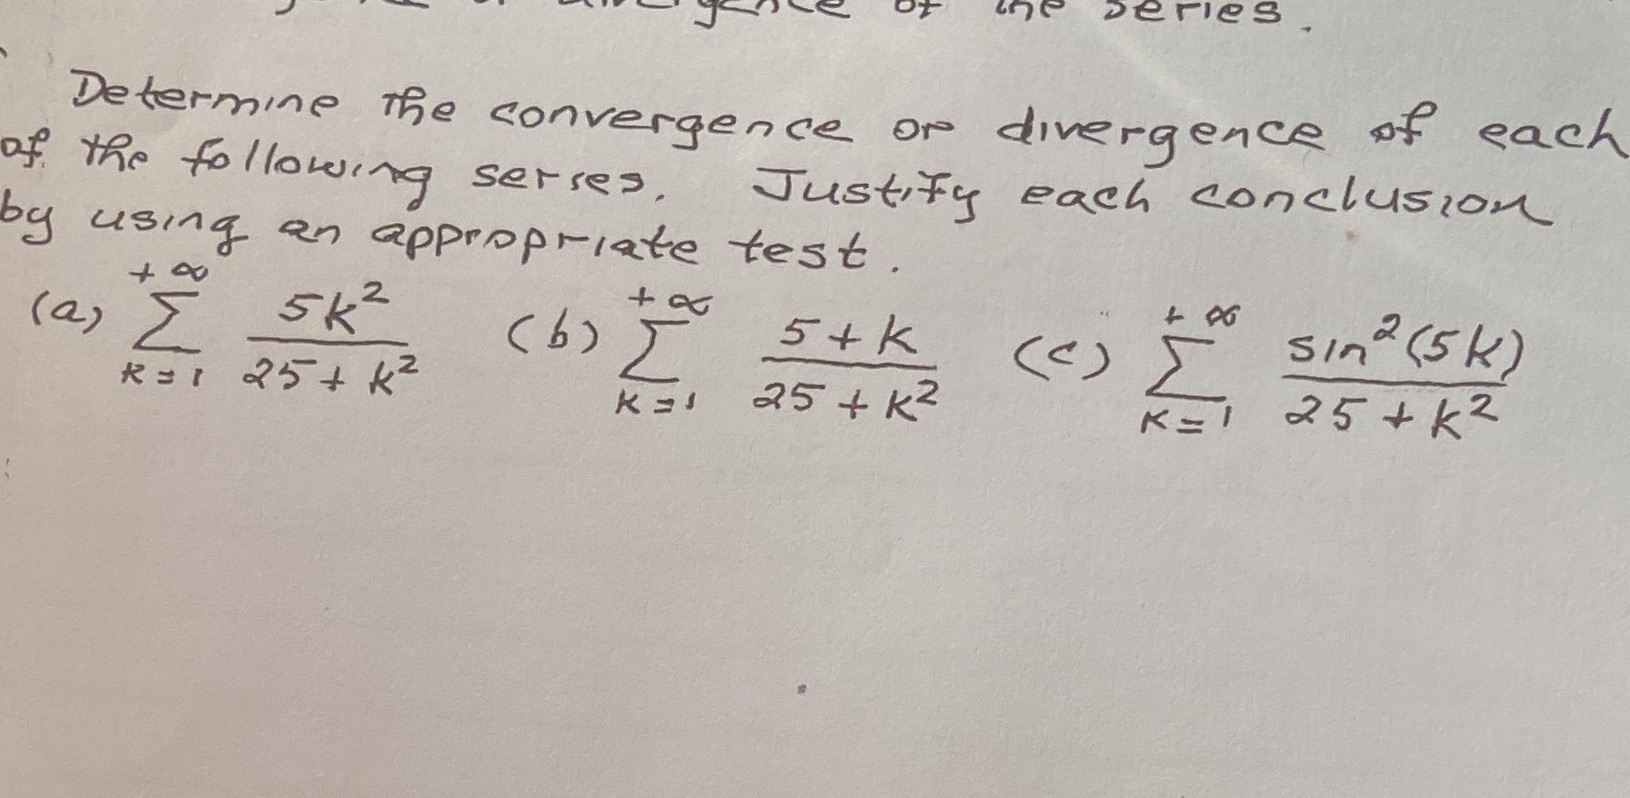 divergence of the series.
Determine the convergence or divergence of each
of the following series. Justify each conclusion
by using an appropriate test.
(a) +∞ ∑ k=1 5k² / 25 + k² (b) +∞ ∑ k=1 5 + k / 25 + k² (c) +∞ ∑ k=1 sin²(5k) / 25 + k²